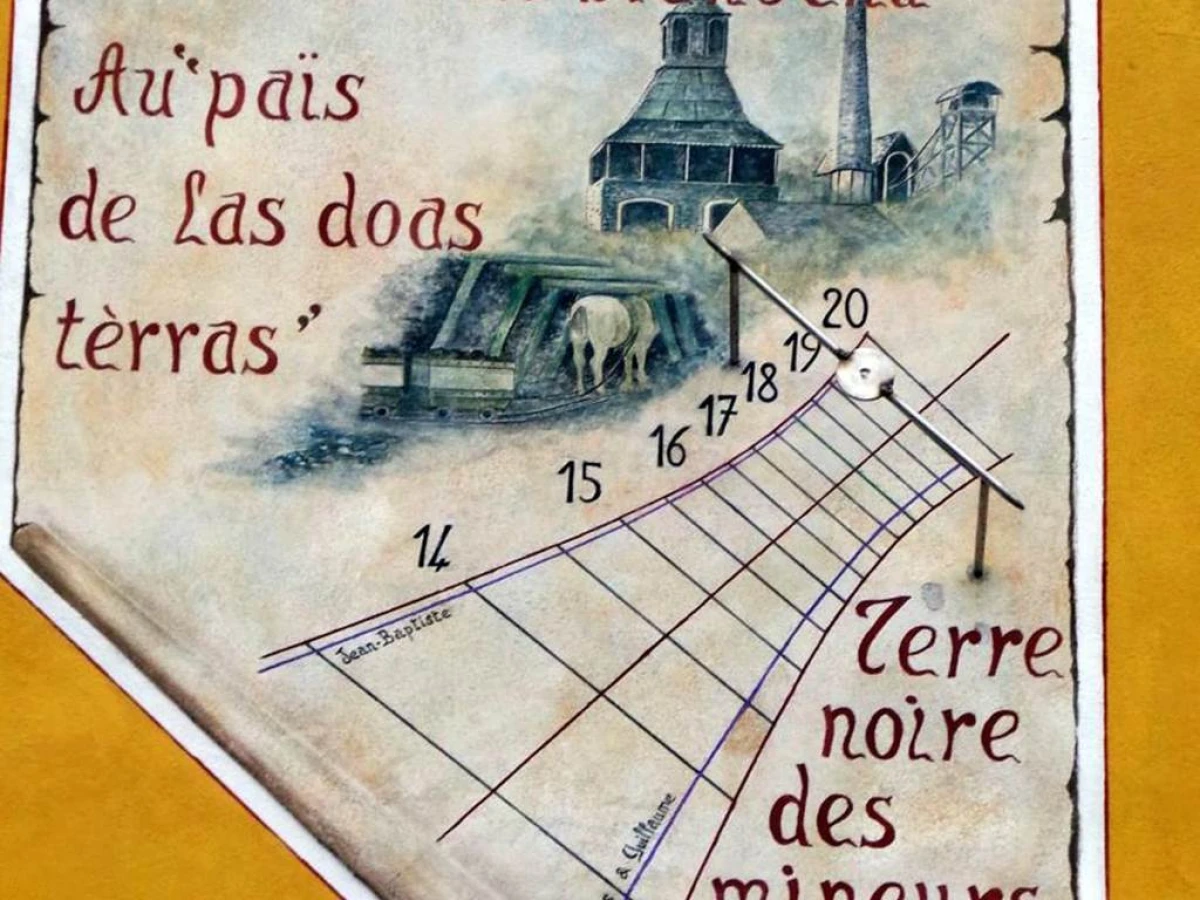 Au "païs
de Las doas
tèrras"
20
19
18
17
16
15
14
Jean-Baptiste
& Guillaume
Terre
noire
des
mineurs